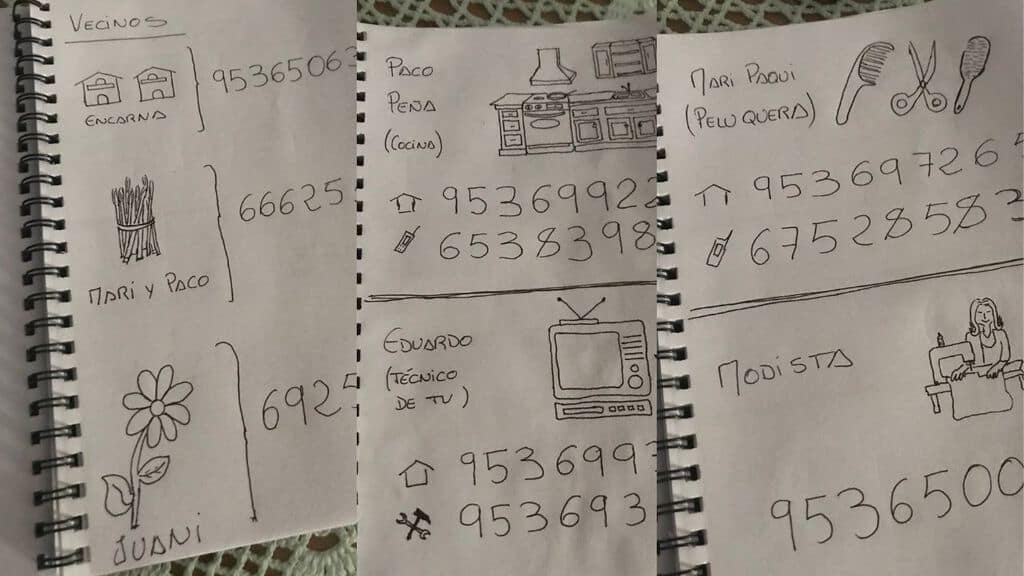 VECINOS
95365063
ENCARNA
66625
MARI Y PACO
6925
JUANI
PACO
PEÑA
(COCINA)
95369922
6538398
EDUARDO
(TÉCNICO
DE TV)
9536997
953693
MARI PAQUI
(PELUQUERA)
953697265
675285833
MODISTA
9536500